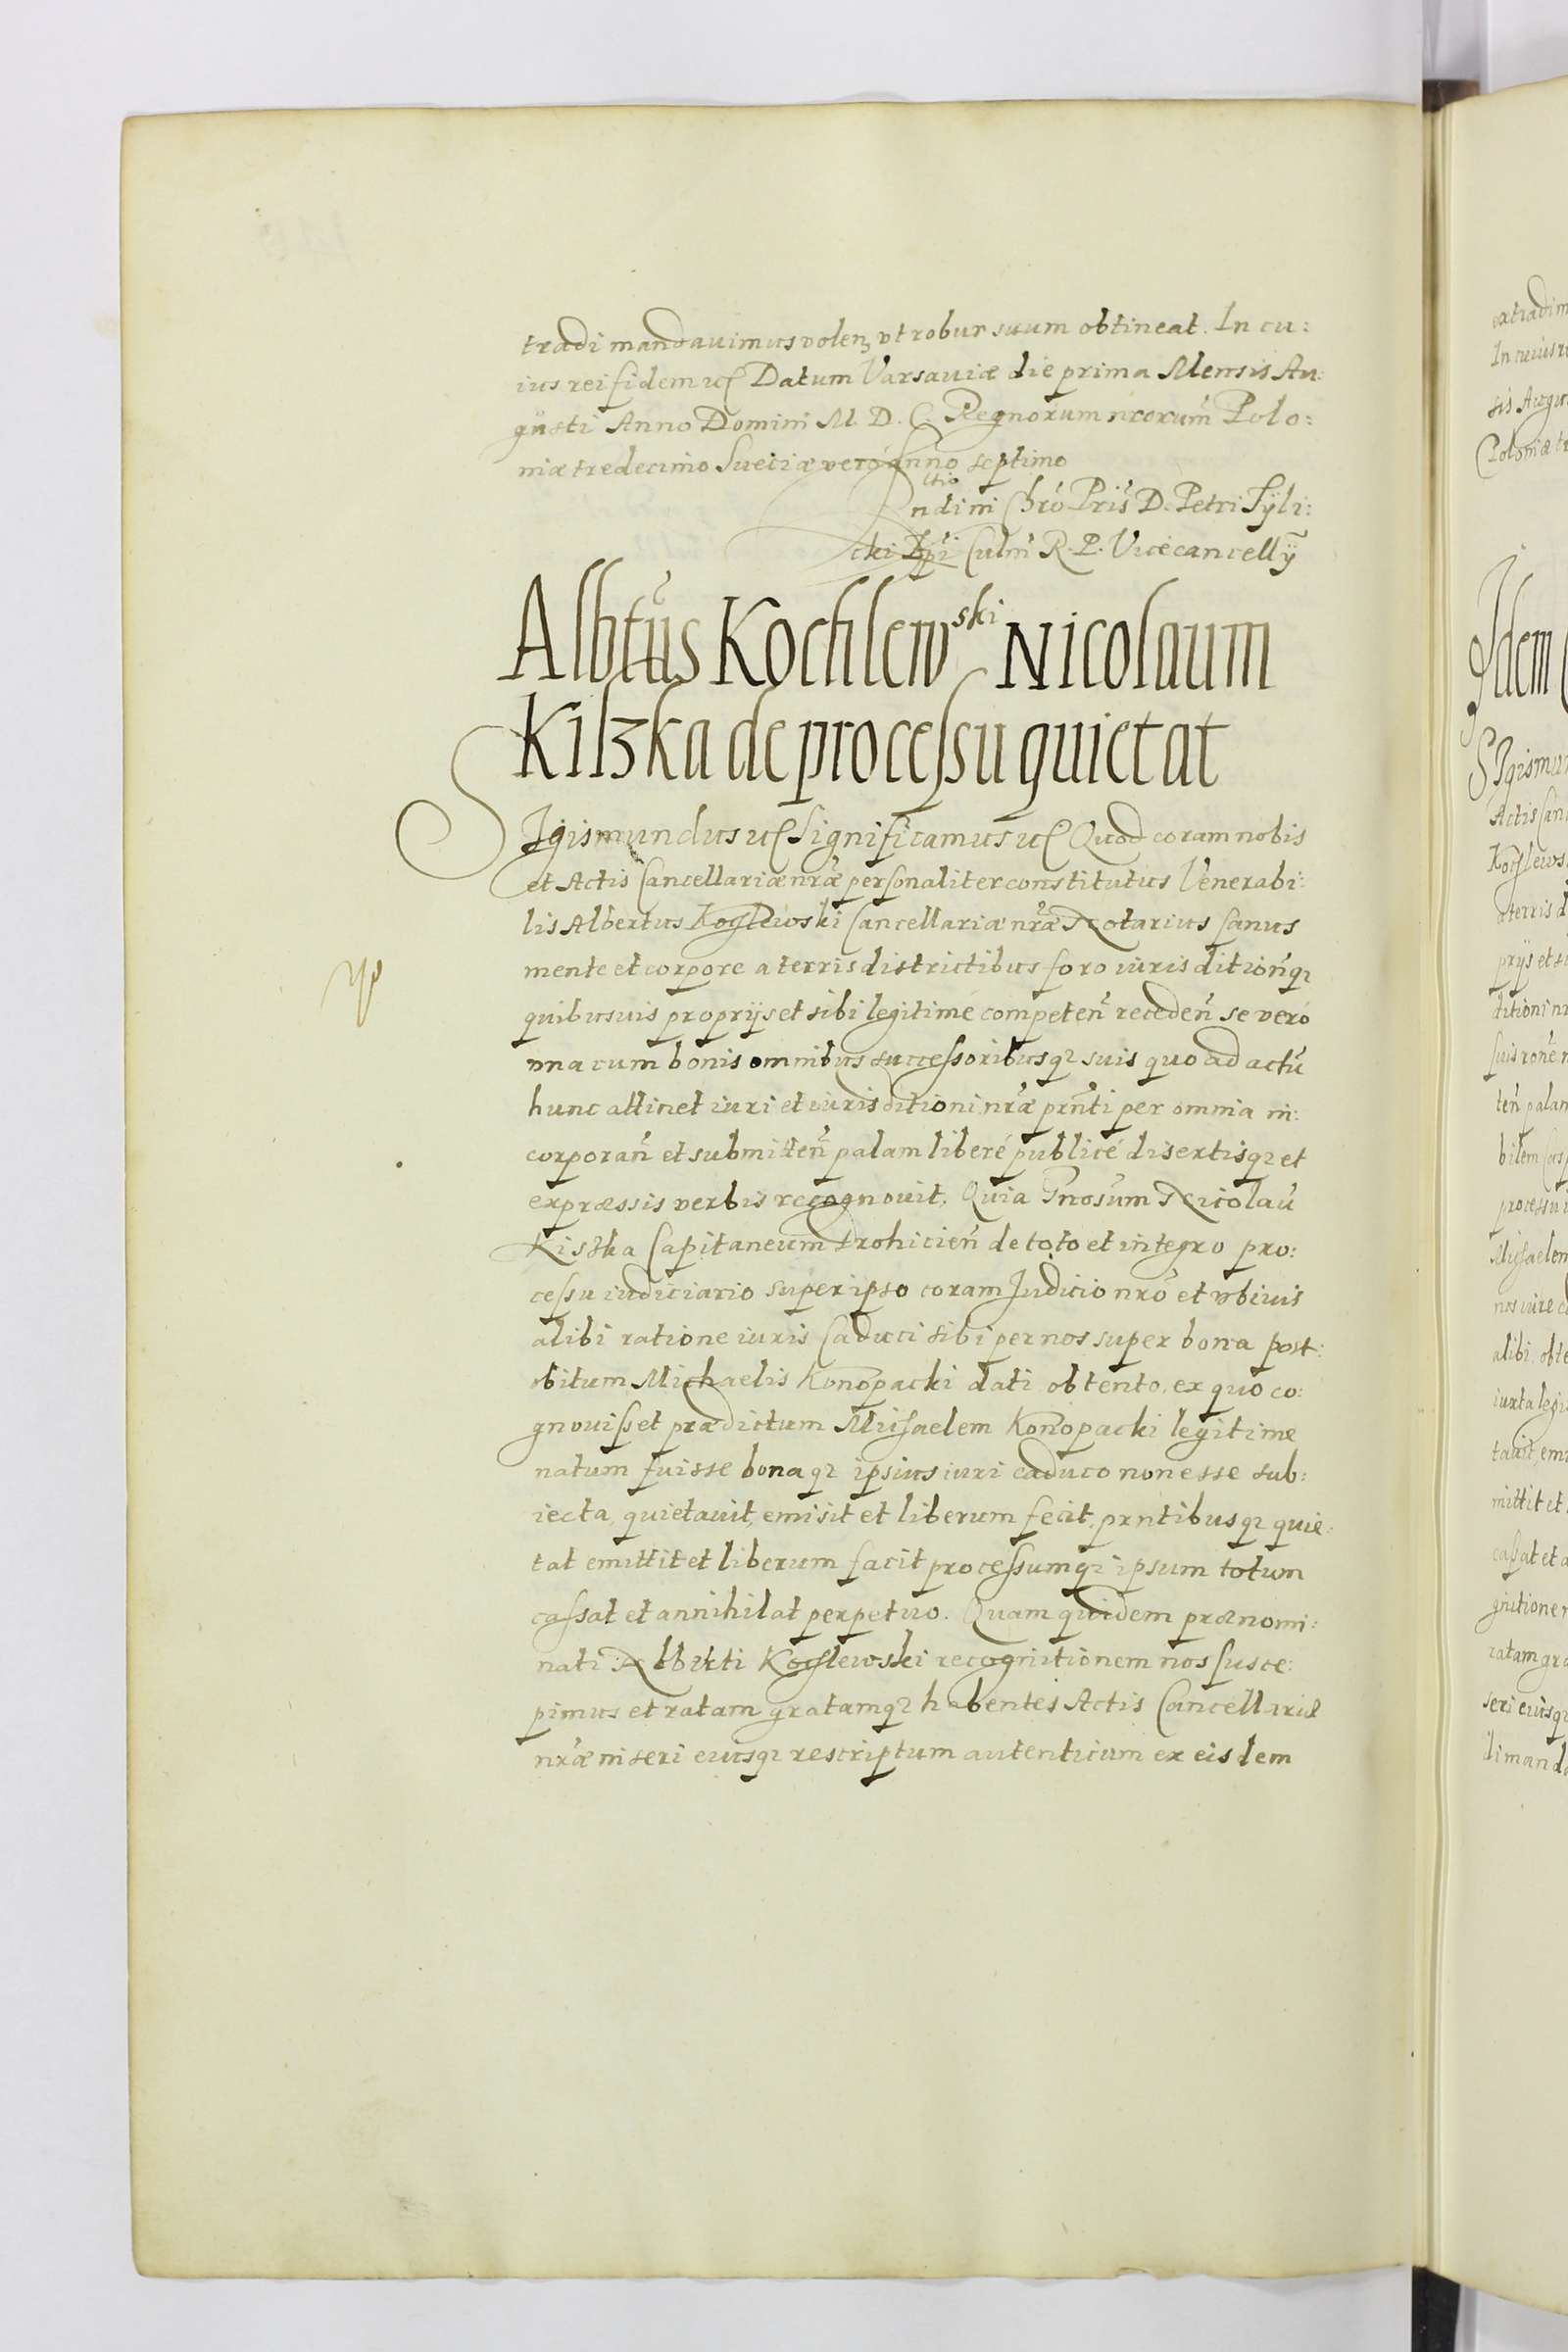 tradi mandauimus volen₃ vt robur suum obtineat. In cu:
ius rei fidem ec Datum Varsauiæ die prima Mensis Au:
gusti Anno Domini M. D. C. Regnorum nrorum Polo:
niæ tredecimo Sueciæ veró Anno septimo
ctio
Rndi in Chró Pris D. Petri Tyli:
cki Epi Culm R. P. Vicecancellÿ
Albtus Kochlewski Nicolaum
Kiszka de processu quietat
Sigismundus ec Significamus ec Quod coram nobis
et Actis Cancellariæ nræ personaliter constitutus Venerabi:
lis Albertus Kochlewski Cancellariæ nræ Notarius sanus
mente et corpore a terris districtibus foro iurisditionq₃
quibusuis proprijs et sibi legitimé competen receden se veró
vna cum bonis omnibus successoribusq₃ suis quo ad actu
hunc attinet iuri et iurisditioni nræ prnti per omnia in:
corporan et submitten palam liberé publicé disertisq₃ et
expræssis verbis recognouit. Quia Gnosum Nicolau
Kiszka Capitaneum Drohicien de toto et integro pro:
cessu iudiciario super ipso coram Judicio nro et vbiuis
alibi ratione iuris Caduci sibi per nos super bona post:
obitum Michaelis Konopacki dati obtento, ex quo co:
gnouisset prædictum Misaelem Konopacki legitime
natum fuisse bonaq₃ ipsius iuri caduco non esse sub:
iecta, quietauit, emisit et liberum fecit, prntibusq₃ quie:
tat emittit et liberum facit processumq₃ ipsum totum
cassat et annihilat perpetuo. Quam quidem prænomi:
nati Alberti Kochlewski recognitionem nos susce:
pimus et ratam gratamq₃ habentes Actis Cancellariæ
nræ inseri eiusq₃ rescriptum autenticum ex eisdem